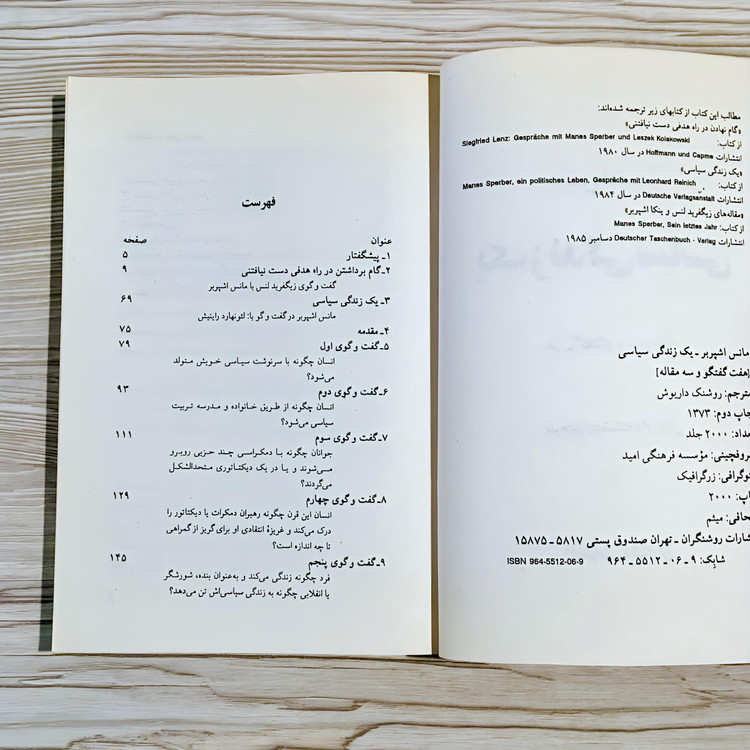 مطالب این کتاب از کتابهای زیر ترجمه شده‌اند:
«گام نهادن در راه هدفی دست نیافتنی»
از کتاب: Siegfried Lenz: Gespräche mit Manes Sperber und Leszek Kolakowski
انتشارات Hoffmann und Capme در سال ۱۹۸۰
«یک زندگی سیاسی»
از کتاب: Manes Sperber, ein politisches Leben, Gespräche mit Leonhard Reinich
انتشارات Deutsche Verlagsanstalt در سال ۱۹۸۴
«مقاله‌های زیگفرید لنس و ینکا اشپربر»
از کتاب: Manes Sperber, Sein letztes Jahr
انتشارات Deutscher Taschenbuch - Verlag دسامبر ۱۹۸۵
مانس اشپربر ـ یک زندگی سیاسی
[هفت گفتگو و سه مقاله]
مترجم: روشنک داریوش
چاپ دوم: ۱۳۷۳
عداد: ۲۰۰۰ جلد
روفچینی: مؤسسه فرهنگی امید
توگرافی: زرگرافیک
اپ: ۲۰۰۰
حافی: میثم
شارات روشنگران ـ تهران صندوق پستی ۵۸۱۷ ـ ۱۵۸۷۵
شابک: ۹ ـ ۰۶ ـ ۵۵۱۲ ـ ۹۶۴ ISBN 964-5512-06-9
فهرست
عنوان صفحه
۱ـ پیشگفتار ۵
۲ـ گام برداشتن در راه هدفی دست نیافتنی ۹
گفت و گوی زیگفرید لنس با مانس اشپربر
۳ـ یک زندگی سیاسی ۶۹
مانس اشپربر در گفت و گو با: لئونهارد راینیش
۴ـ مقدمه ۷۵
۵ـ گفت و گوی اول ۷۹
انسان چگونه با سرنوشت سیاسی خویش متولد
می‌شود؟
۶ـ گفت و گوی دوم ۹۳
انسان چگونه از طریق خانواده و مدرسه تربیت
سیاسی می‌شود؟
۷ـ گفت و گوی سوم ۱۱۱
جوانان چگونه با دمکراسی چند حزبی روبرو
می‌شوند و یا در یک دیکتاتوری متحدالشکل
می‌گردند؟
۸ـ گفت و گوی چهارم ۱۲۹
انسان این قرن چگونه رهبران دمکرات یا دیکتاتور را
درک می‌کند و غریزهٔ انتقادی او برای گریز از گمراهی
تا چه اندازه است؟
۹ـ گفت و گوی پنجم ۱۴۵
فرد چگونه زندگی می‌کند و به‌عنوان بنده، شورشگر
یا انقلابی چگونه به زندگی سیاسی‌اش تن می‌دهد؟